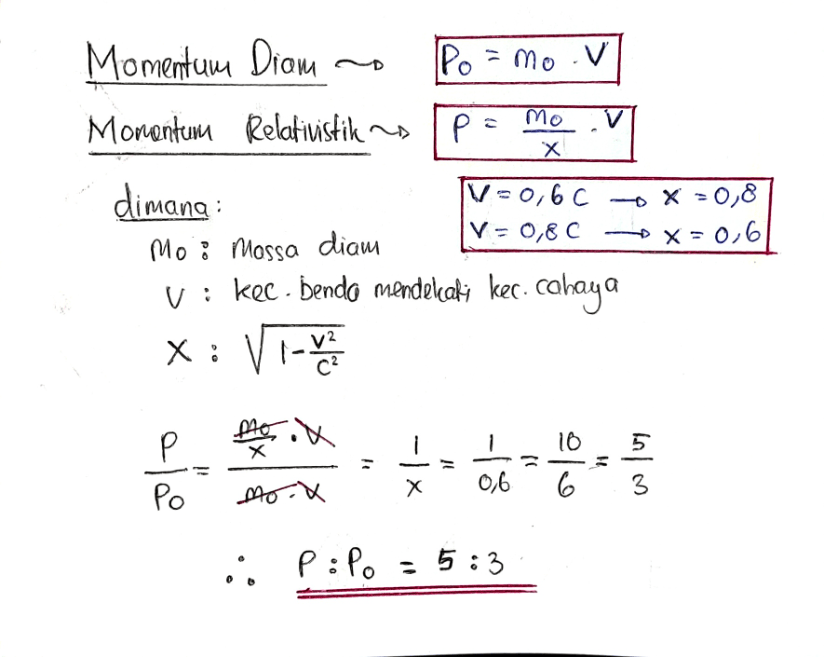 Momentum Diam ⤳ Po = mo . V
Momentum Relativistik ⤳ P = mo/x . V
dimana:
V = 0,6 C → x = 0,8
V = 0,8 C → x = 0,6
Mo : Massa diam
V : kec. benda mendekati kec. cahaya
X : √(1-V²/C²)
P/Po = (mo/x . V)/(mo . V) = 1/x = 1/0,6 = 10/6 = 5/3
∴ P : Po = 5 : 3